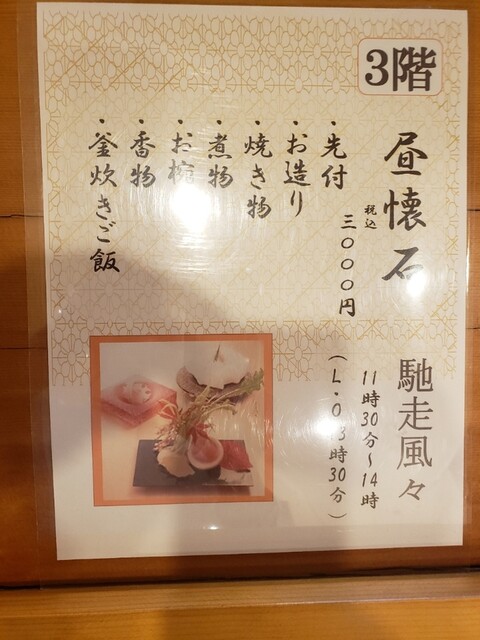 3階
昼懐石
税込
三〇〇〇円
・先付
・お造り
・焼き物
・煮物
・お椀
・香物
・釜炊きご飯
馳走風々
11時30分～14時
(L.O 3時30分)